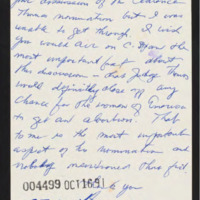 your discussion of the Clarence
Thomas nomination but I was
unable to get through. I wish
you would air on C-Span the
most important fact about
this discussion - that Judge Thomas
would definitely close off any
chance for the women of America
to get an abortion. That
to me is the most important
aspect of his nomination and
nobody mentioned that fact.
004499 OCT 16 91
to you